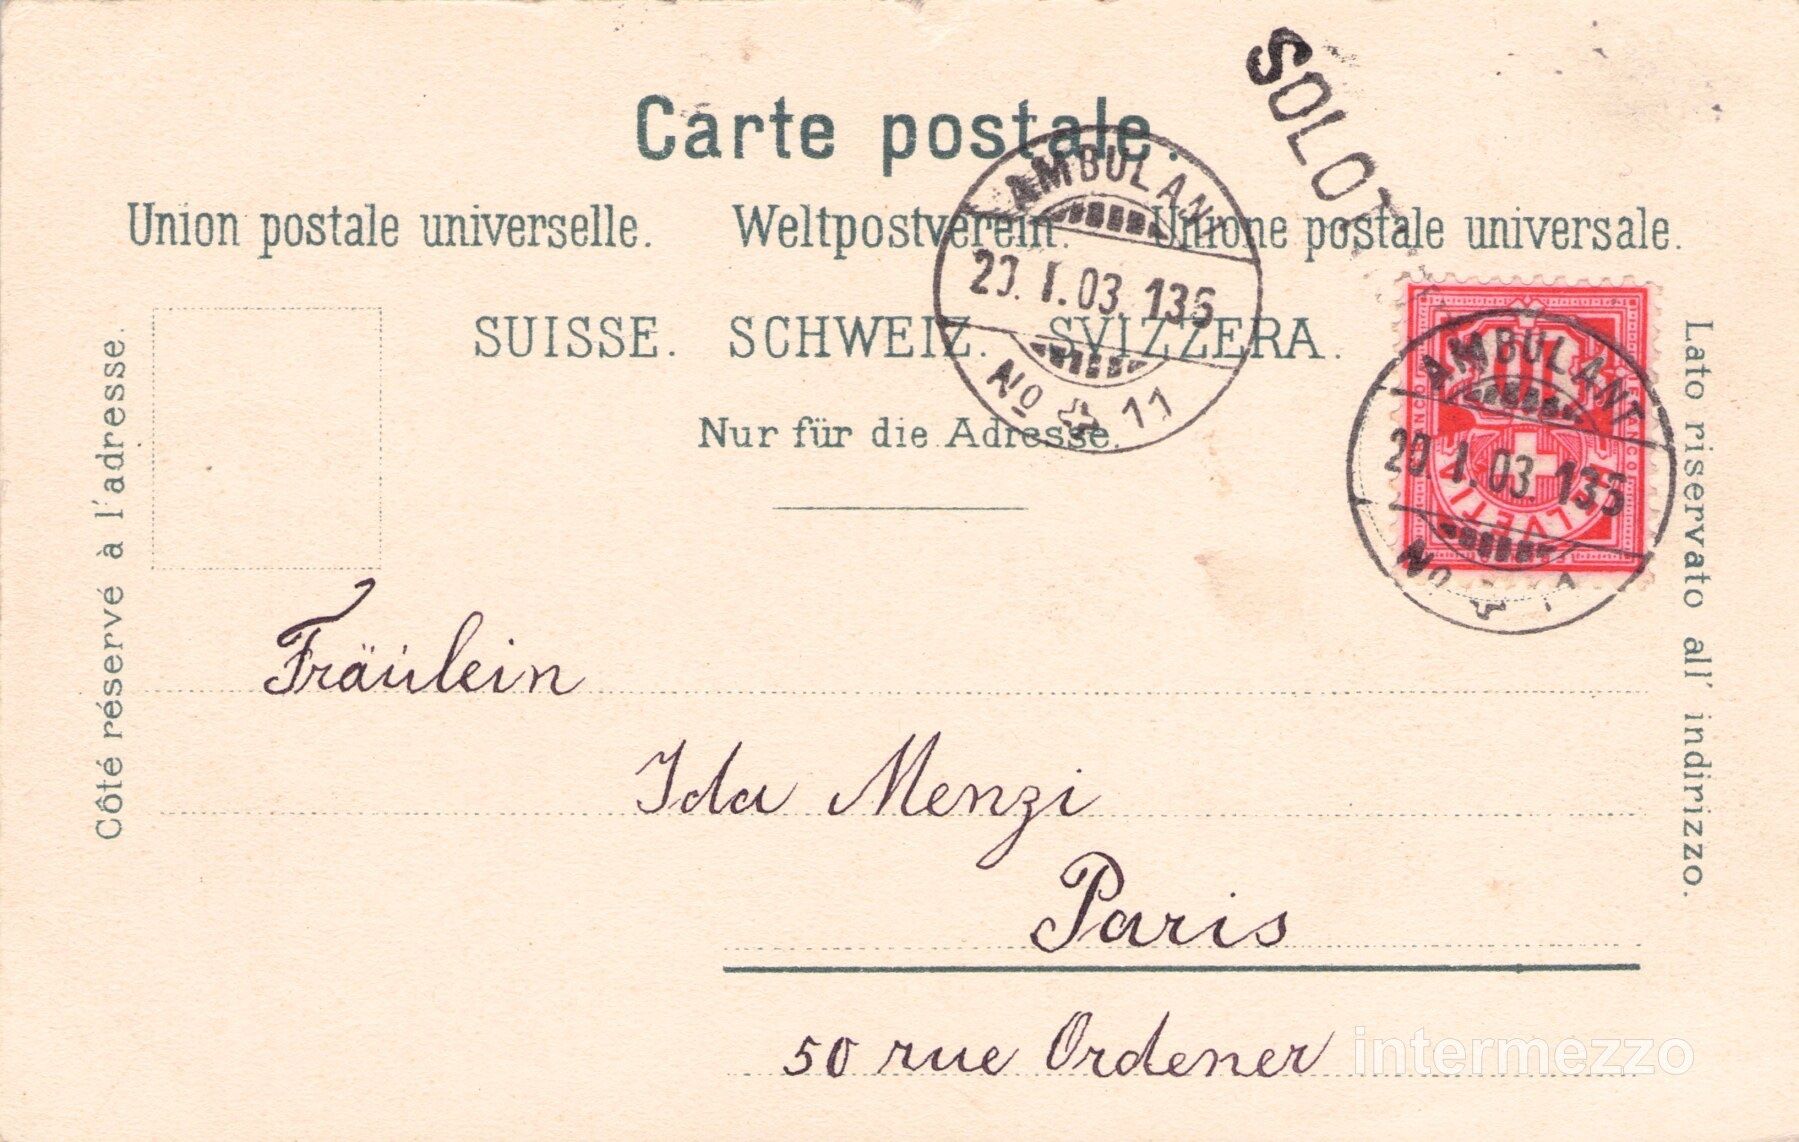 SOLOT
Carte postale.
Union postale universelle. Weltpostverein. Unione postale universale.
SUISSE. SCHWEIZ. SVIZZERA.
Nur für die Adresse.
AMBULANT
20. I. 03. 136
No 11
FRANCO
10
FRANCO
HELVETIA
AMBULANT
20. I. 03. 136
No 11
Côté réservé à l'adresse.
Lato riservato all' indirizzo.
Fräulein
Ida Menzi
Paris
50 rue Ordener
intermezzo